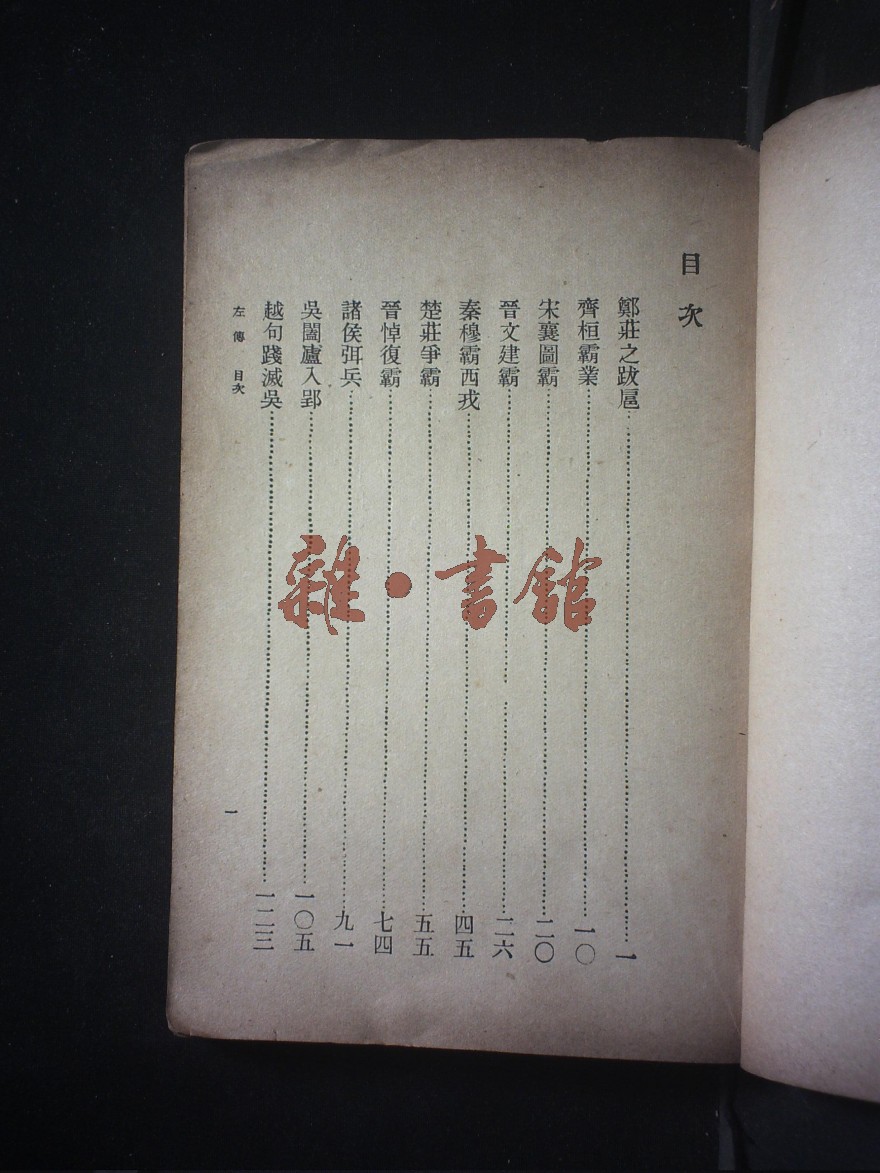 目次
鄭莊之跋扈……一
齊桓霸業……一〇
宋襄圖霸……二〇
晉文建霸……二六
秦穆霸西戎……四五
楚莊爭霸……五五
晉悼復霸……七四
諸侯弭兵……九一
吳闔廬入郢……一〇五
越句踐滅吳……一二三
左傳 目次
一
雜·書館